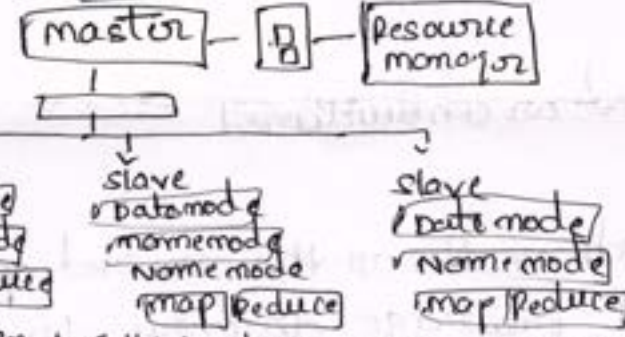 master
Resource
manager
slave
Datanode
namenode
Name node
map Reduce
slave
Date node
Name node
map Reduce